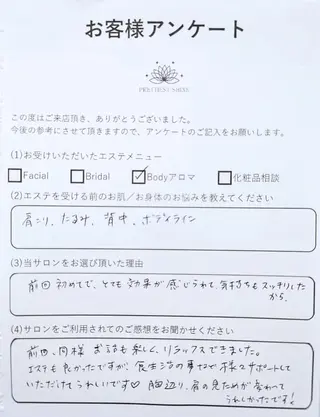 お客様アンケート
PRECIOUS SHINE
この度はご来店頂き、ありがとうございました。
今後の参考にさせて頂きますので、アンケートのご記入をお願いします。
(1)お受けいただいたエステメニュー
Facial Bridal Bodyアロマ 化粧品相談
(2)エステを受ける前のお肌/お身体のお悩みを教えてください
肩こり、たるみ、背中、ボディライン
(3)当サロンをお選び頂いた理由
前回初めてで、とても効果が感じられて、気持ちもスッキリしたから。
(4)サロンをご利用されてのご感想をお聞かせください
前回同様お話も楽しく、リラックスできました。
エステも良かったですが、食生活の事など様々サポートして
いただけてうれしいです♡ 胸辺り、肩の見ためが変わって
うれしかったです!